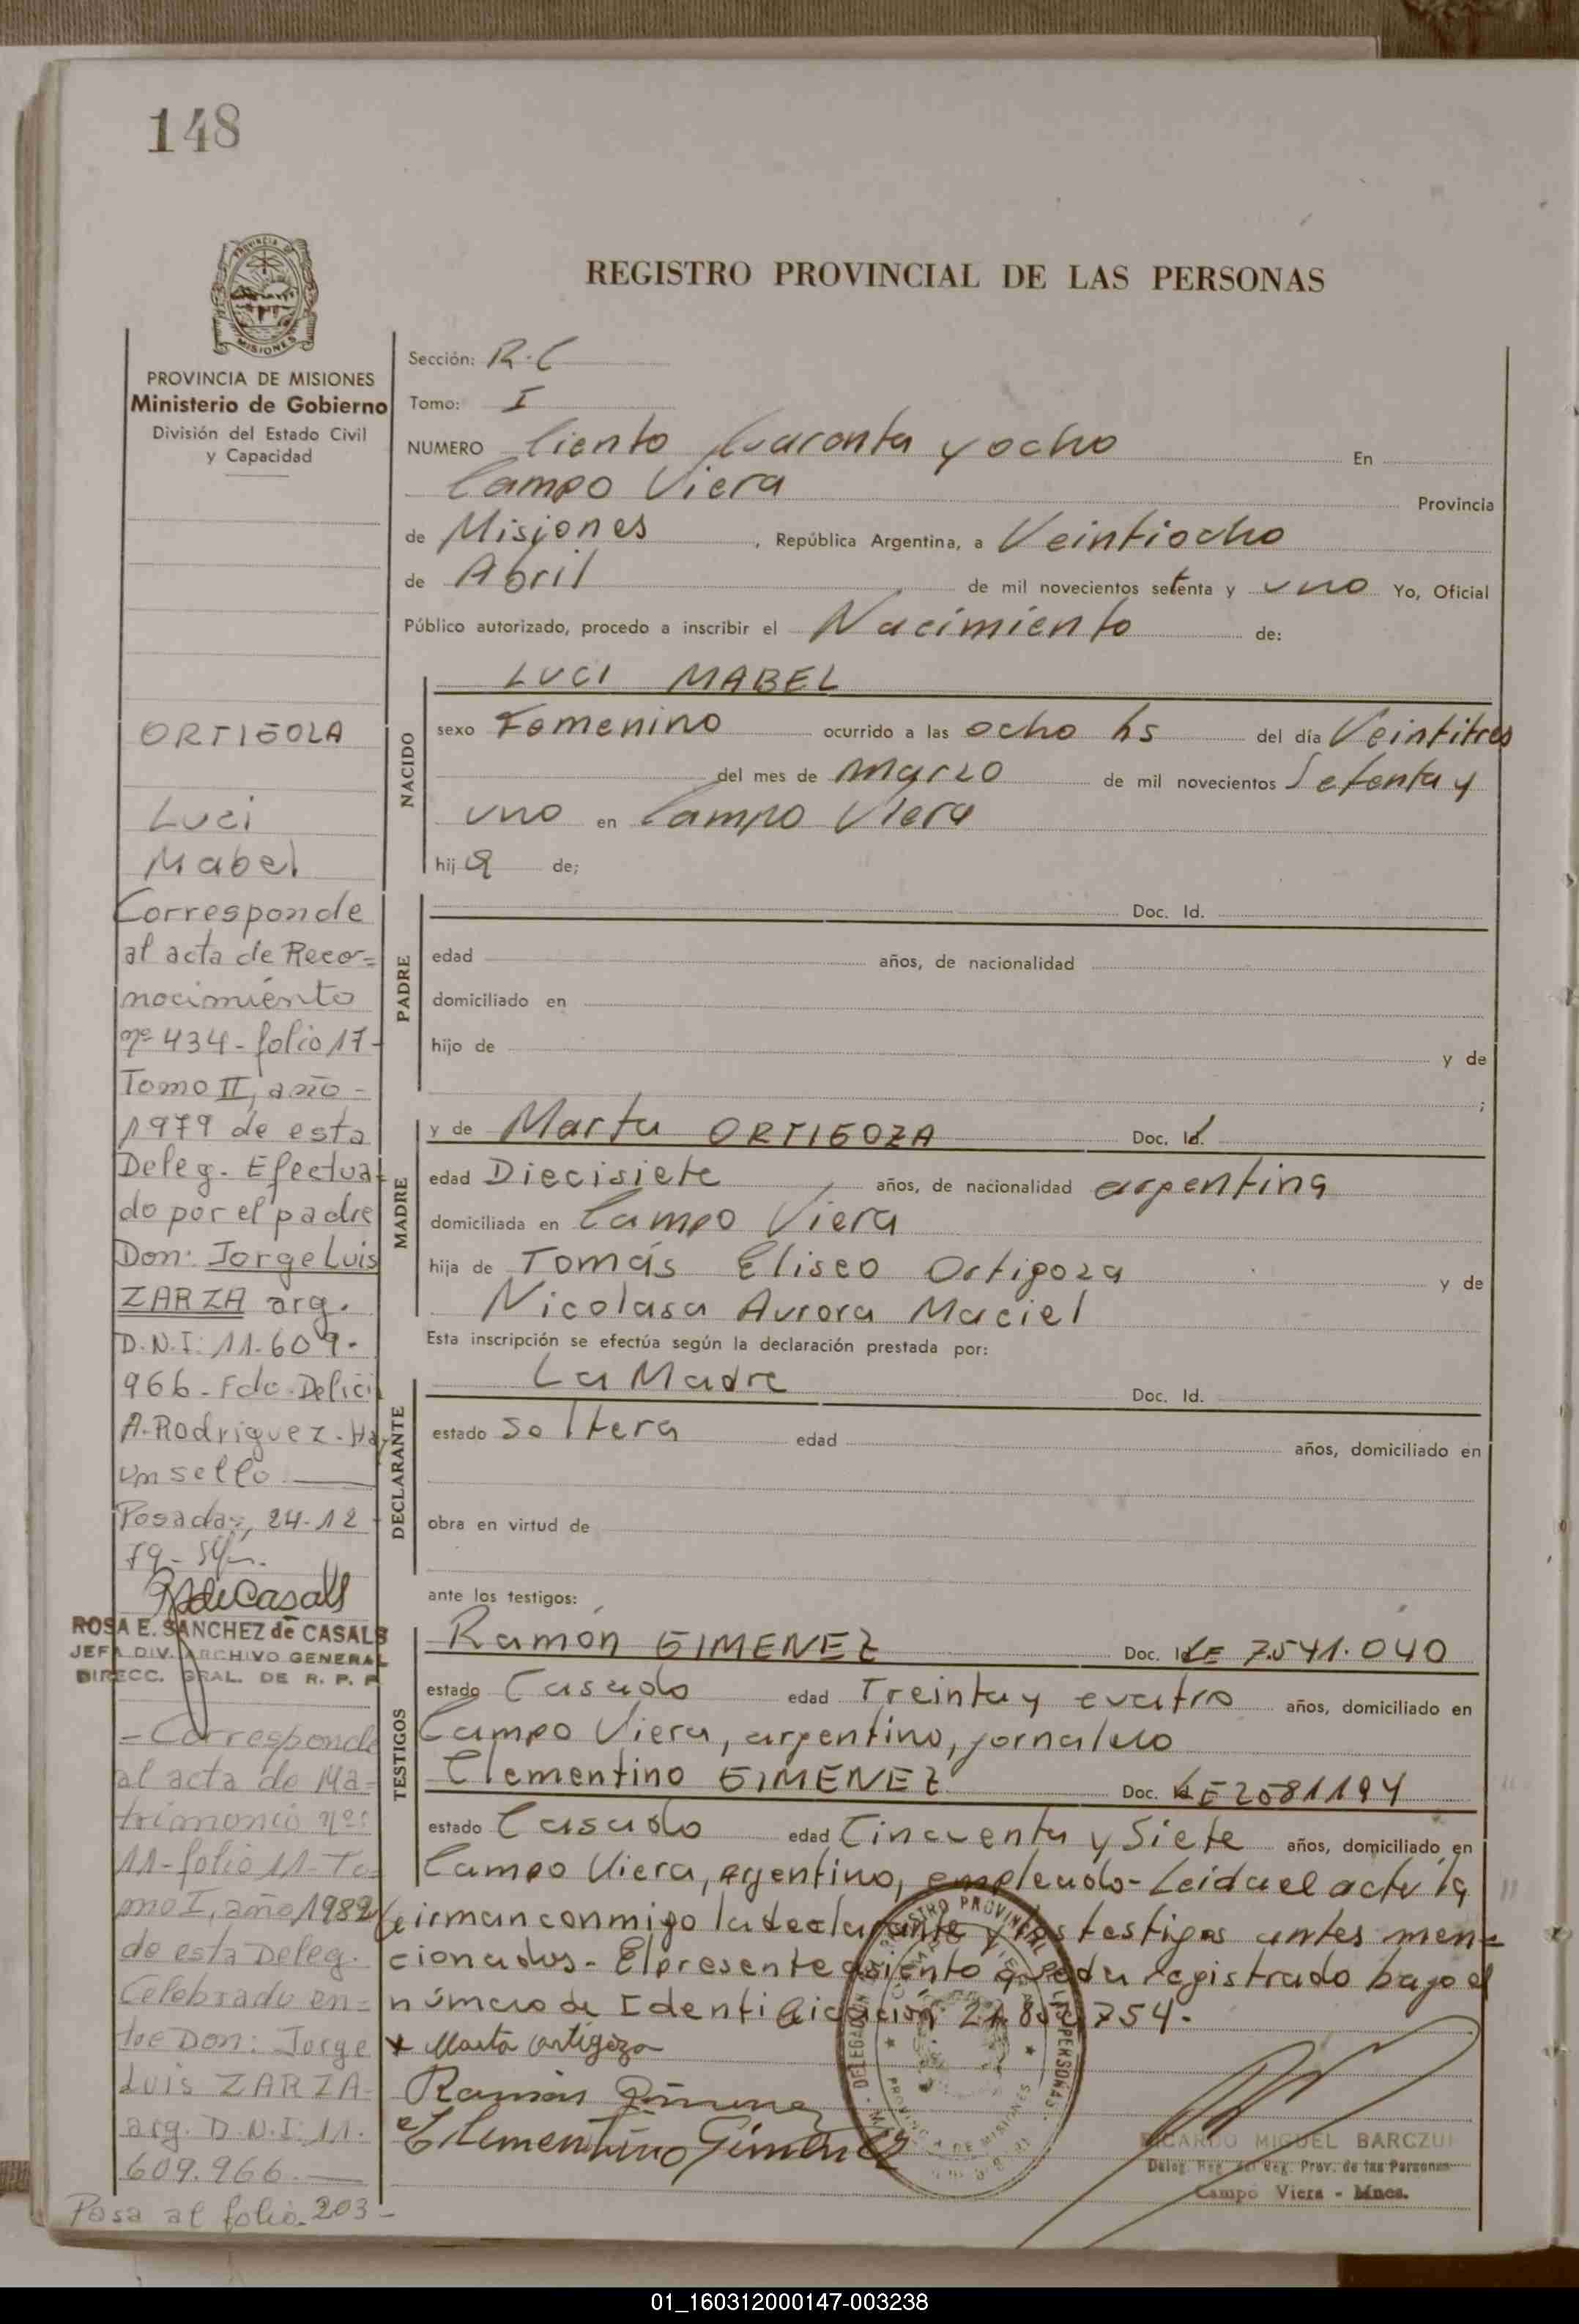 148
PROVINCIA DE
MISIONES
PROVINCIA DE MISIONES
Ministerio de Gobierno
División del Estado Civil
y Capacidad
REGISTRO PROVINCIAL DE LAS PERSONAS
Sección: R.C
Tomo: I
NUMERO Ciento Cuarenta y ocho En
Campo Viera Provincia
de Misiones, República Argentina, a Veintiocho
de Abril de mil novecientos setenta y uno Yo, Oficial
Público autorizado, procedo a inscribir el Nacimiento de:
NACIDO
LUCI MABEL
sexo Femenino ocurrido a las ocho hs del día Veintitres
del mes de marzo de mil novecientos Setenta y
uno en Campo Viera
hija de;
PADRE
Doc. Id.
edad años, de nacionalidad
domiciliado en
hijo de y de
;
MADRE
y de Marta ORTIGOZA Doc. Id.
edad Diecisiete años, de nacionalidad argentina
domiciliada en Campo Viera
hija de Tomás Eliseo Ortigoza y de
Nicolasa Aurora Maciel
Esta inscripción se efectúa según la declaración prestada por:
DECLARANTE
La Madre Doc. Id.
estado Soltera edad años, domiciliado en
obra en virtud de
ante los testigos:
TESTIGOS
Ramón GIMENEZ Doc. Id. LE 7.541.040
estado Casado edad Treinta y cuatro años, domiciliado en
Campo Viera, argentino, jornalero
Clementino GIMENEZ Doc. LE 2581194
estado Casado edad Cincuenta y Siete años, domiciliado en
Campo Viera, argentino, empleado- Leida el acta la
firman conmigo la declarante y los testigos antes men=
cionados- El presente asiento queda registrado bajo el
número de Identificación 21.802.754.
x Marta Ortigoza
Ramón Gimenez
Clementino Gimenez
DELEGACION REGISTRO PROVINCIAL DE LAS PERSONAS
CAMPO VIERA
PROVINCIA DE MISIONES
RICARDO MIGUEL BARCZUK
Deleg. Reg. del Reg. Prov. de las Personas
Campo Viera - Mnes.
ORTIGOZA
Luci
Mabel
Corresponde
al acta de Reco=
nocimiento
nº 434- folio 17-
Tomo II, año-
1979 de esta
Deleg. Efectua-
do por el padre
Don: Jorge Luis
ZARZA arg.
D.N.I: 11.609.
966- Fdo. Delicia
A. Rodriguez. Hay
un sello
Posadas, 24-12
79-
RSdeCasals
ROSA E. SANCHEZ de CASALS
JEFA DIV. ARCHIVO GENERAL
DIRECC. GRAL. DE R. P. P.
- Corresponde
al acta de Ma=
trimonio nº:
11- folio 11- To=
mo I, año 1982
de esta Deleg.
Celebrado en=
tre Don: Jorge
Luis ZARZA-
arg. D.N.I: 11.
609.966.
Pasa al folio. 203-
01_160312000147-003238